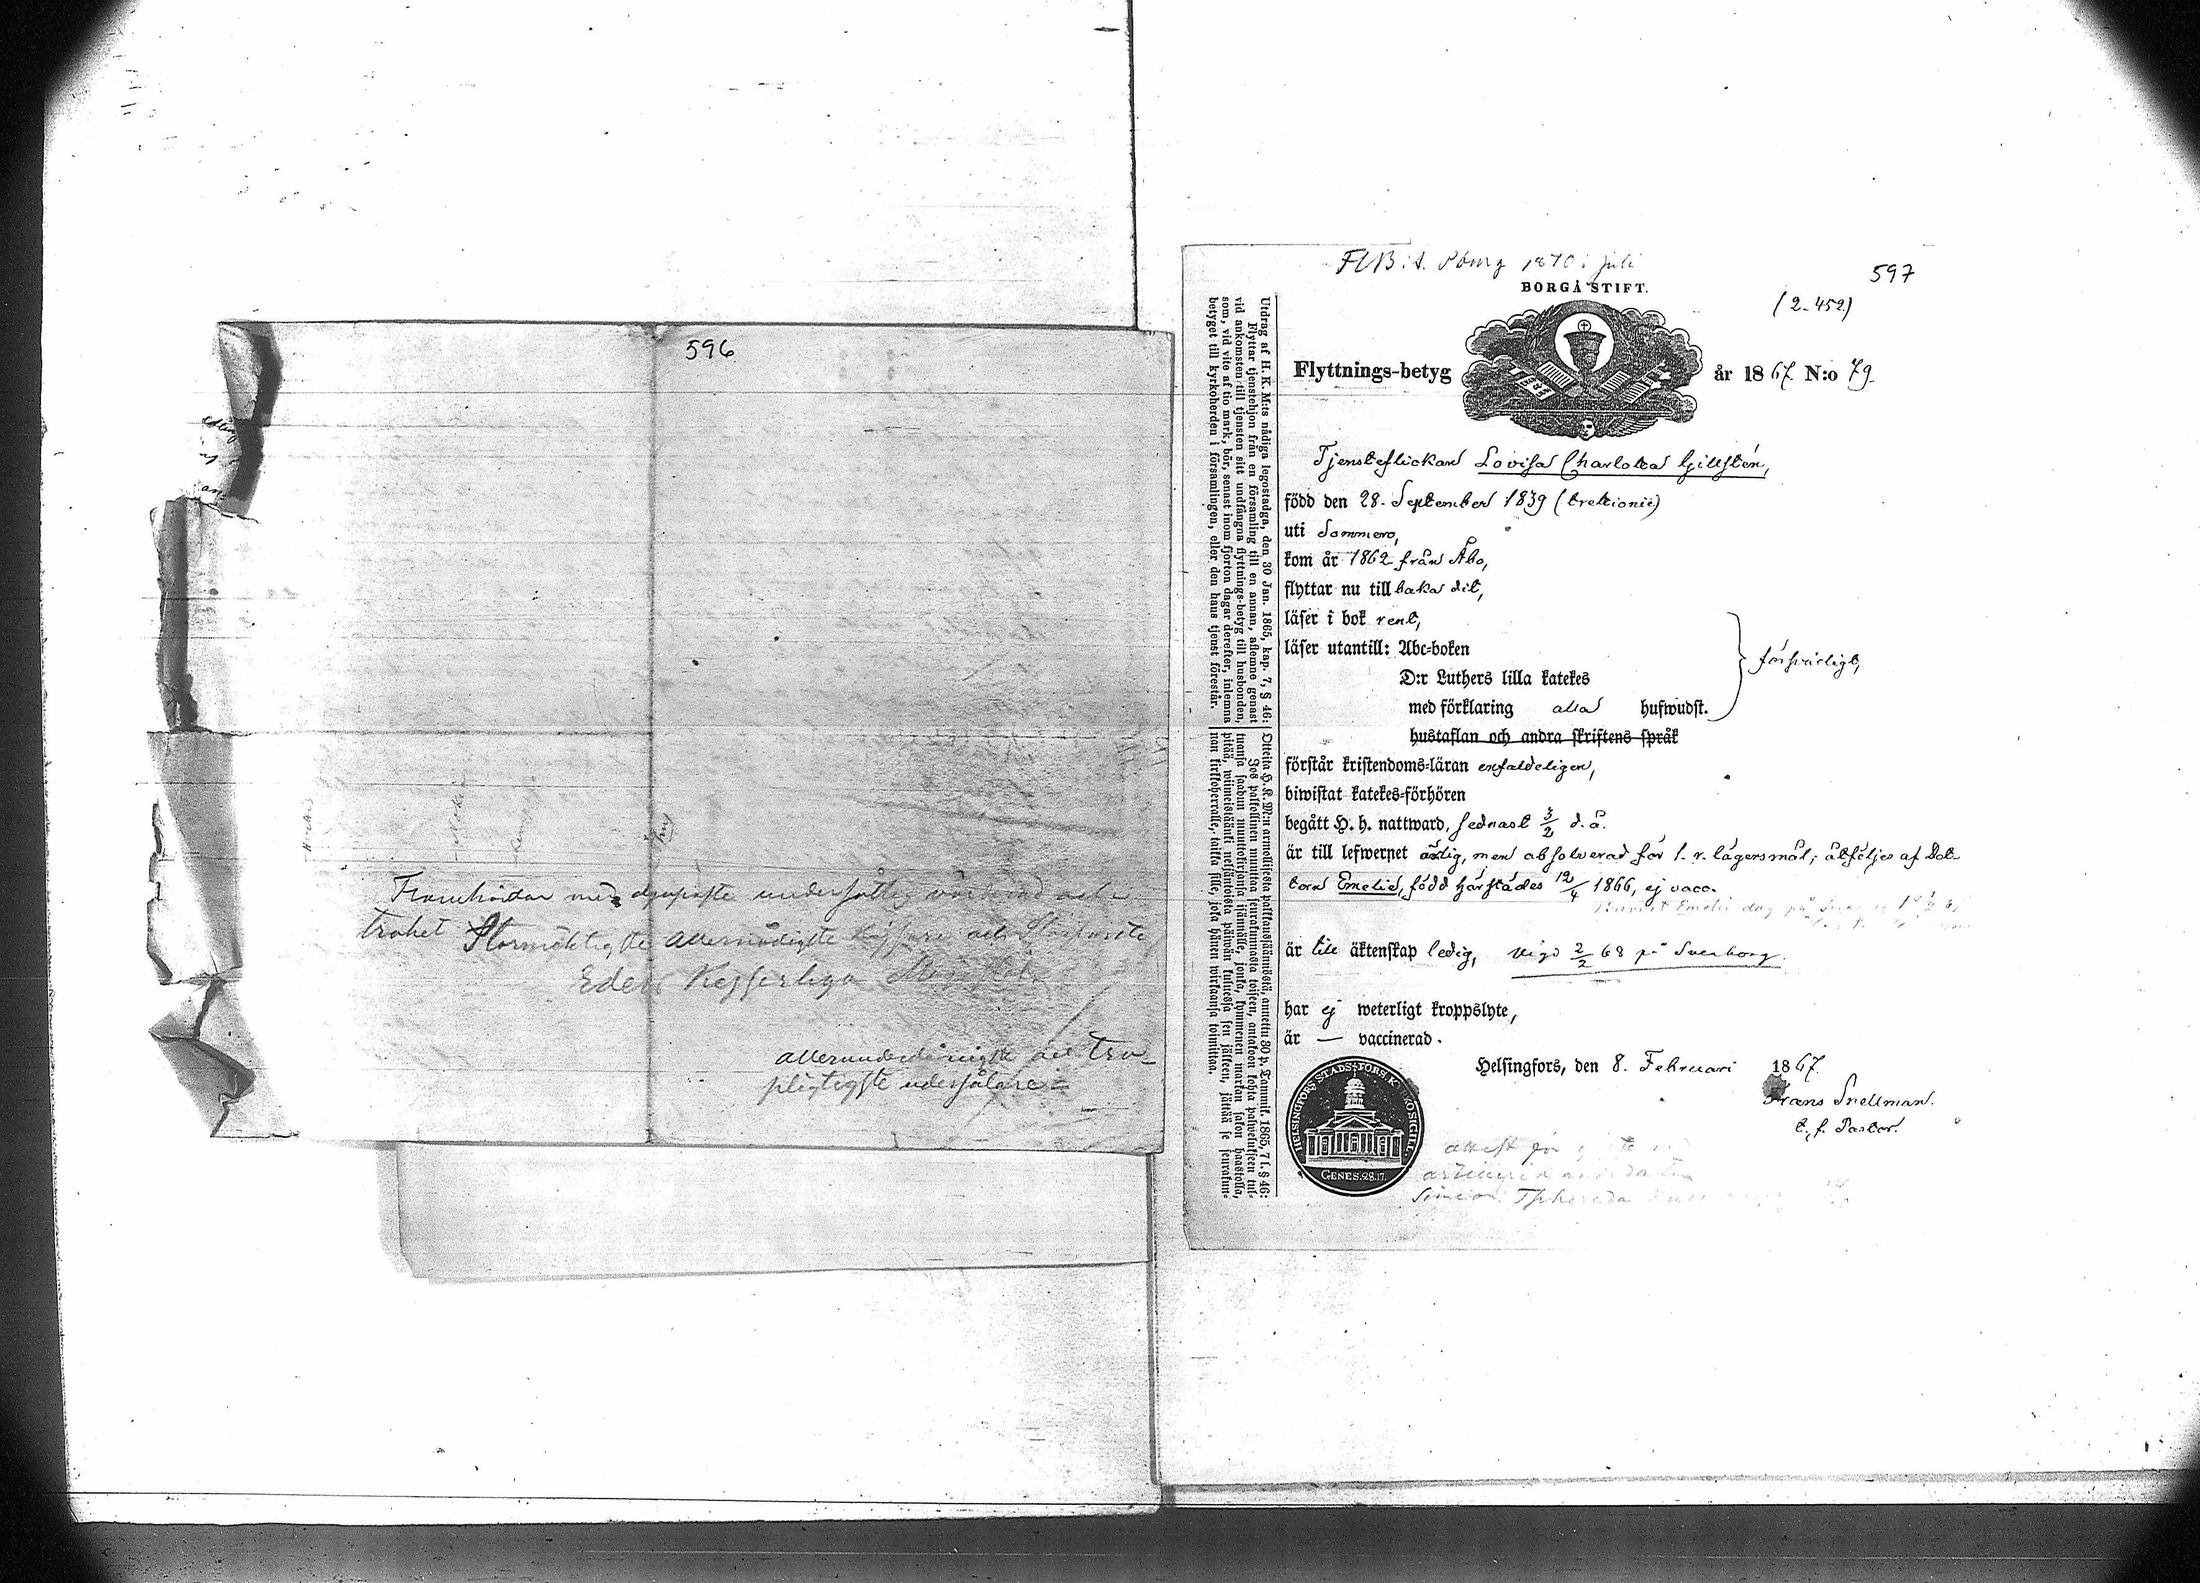 596
Framhärdar med djupaste undersåtlig vördnad och
trohet Stormäktigste Allernådigste Kejsare och
Eders Kejserliga
allerunderdånigste och tro-
pligtigste undersåtare
597
1870 i Juli
(2-452)
BORGÅ STIFT.
Flyttnings-betyg år 1867 N:o 79.
Tjensteflickan Lovisa Charlotta Gillstén,
född den 28. September 1839 (trettionie)
uti Sommero,
kom år 1862 från Åbo,
flyttar nu till baka dit,
läser i bok rent,
läser utantill: Abc-boken
D:r Luthers lilla katekes
med förklaring alla hufwudst.
försvarligt,
hustaflan och andra skriftens språk
förstår kristendoms-läran enfaldeligen,
biwistat katekes-förhören
begått H. h. nattward, sednast 3/2 d. å.
är till lefwernet ärlig, men absolverad för l. r. lägersmål; åtföljes af dot-
tern Emelie, född härstädes 12/4 1866, ej vacc.
är till äktenskap ledig, vigd 2/2 68 på Sveaborg.
har ej weterligt kroppslyte,
är — vaccinerad.
Helsingfors, den 8. Februari 1867.
Frans Snellman.
t. f. Pastor.
HELSINGFORS STADSFÖRS. K.
GENES. 28.17.
Utdrag af H. K. M:ts nådiga legostadga, den 30 Jan. 1865, kap. 7, § 46:
Flyttar tjenstehjon från en församling till en annan, aflemne genast
vid ankomsten till tjensten sitt undfångna flyttnings-betyg till husbonden,
som, vid vite af tio mark, bör, senast inom fjorton dagar derefter, inlemna
betyget till kyrkoherden i församlingen, eller den hans tjenst förestår.
Otteita H. K. M:n armollisesta palkkaussäännöstä, annettu 30 p. Tammik. 1865, 7 l. § 46:
Jos palkollinen muuttaa seurakunnasta toiseen, antakoon kohta palwelukseen tul-